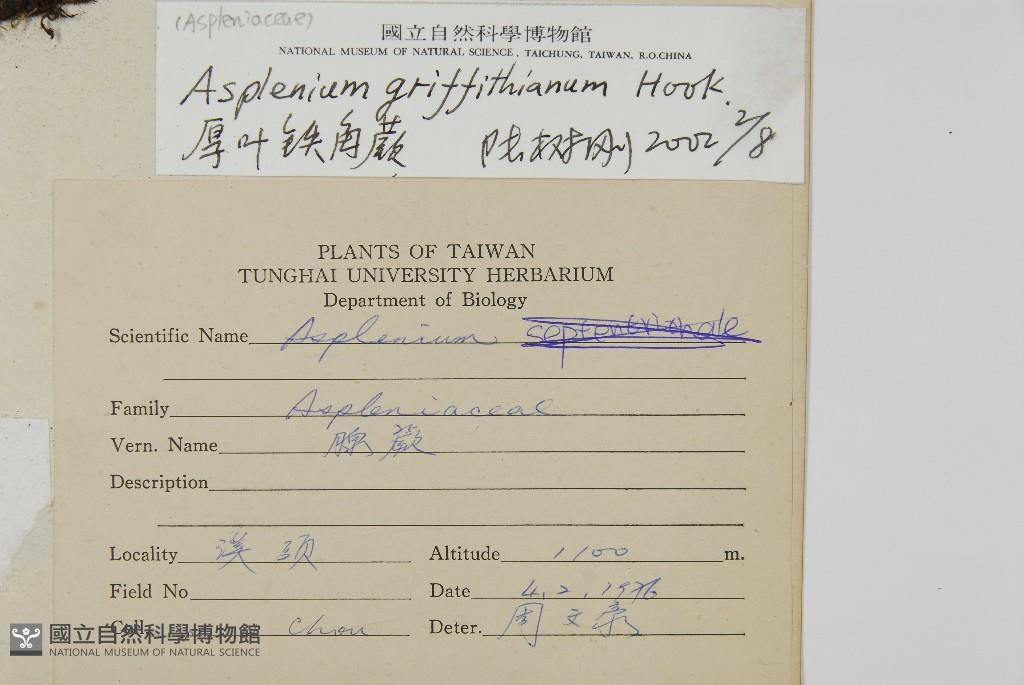 (Aspleniaceae)
國立自然科學博物館
NATIONAL MUSEUM OF NATURAL SCIENCE, TAICHUNG, TAIWAN, R.O.CHINA
Asplenium griffithianum Hook.
厚叶铁角蕨 陆树刚 2002 2/8
PLANTS OF TAIWAN
TUNGHAI UNIVERSITY HERBARIUM
Department of Biology
Scientific Name Asplenium septentrionale
Family Aspleniaceae
Vern. Name 蕨
Description
Locality 溪頭 Altitude 1100 m.
Field No Date 4.2.1976
Coll. Chou Deter. 周文豪
國立自然科學博物館
NATIONAL MUSEUM OF NATURAL SCIENCE